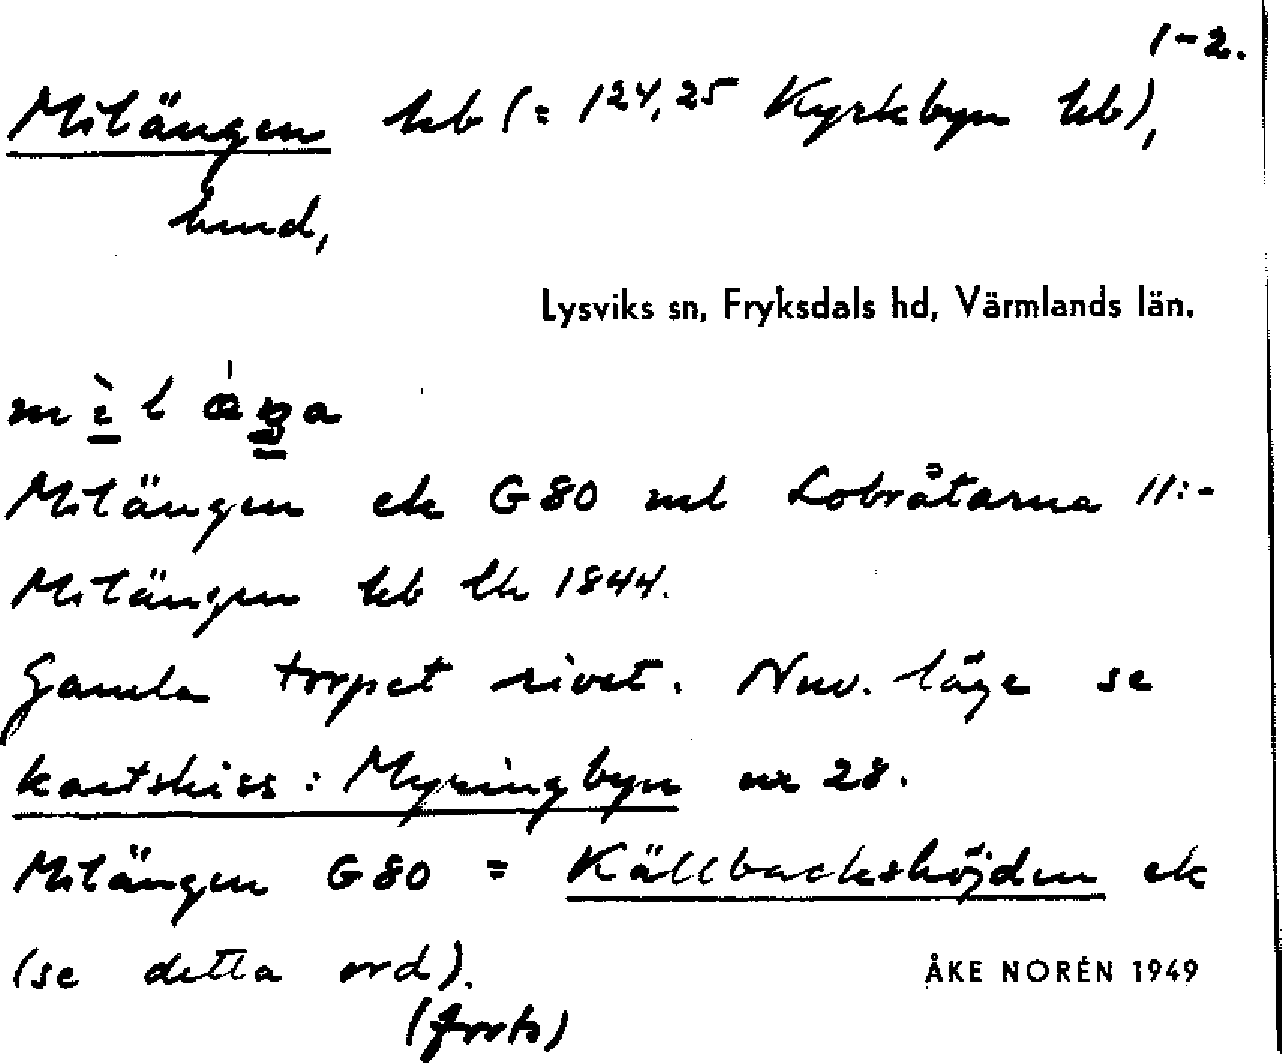 1-2.
Milängen hb (= 1²⁴,²⁵ Kyrkbyn hb),
hmd,
Lysviks sn, Fryksdals hd, Värmlands län.
mìl áŋa
Milängen ek G80 ml Lobråtarna 11:-
Milängen hb lk 1844.
Gamla torpet rivet. Nuv. läge se
kartskiss: Myringbyn nr 28.
Milängen G80 = Källbackshöjden ek
(se detta ord).
ÅKE NORÉN 1949
(forts)